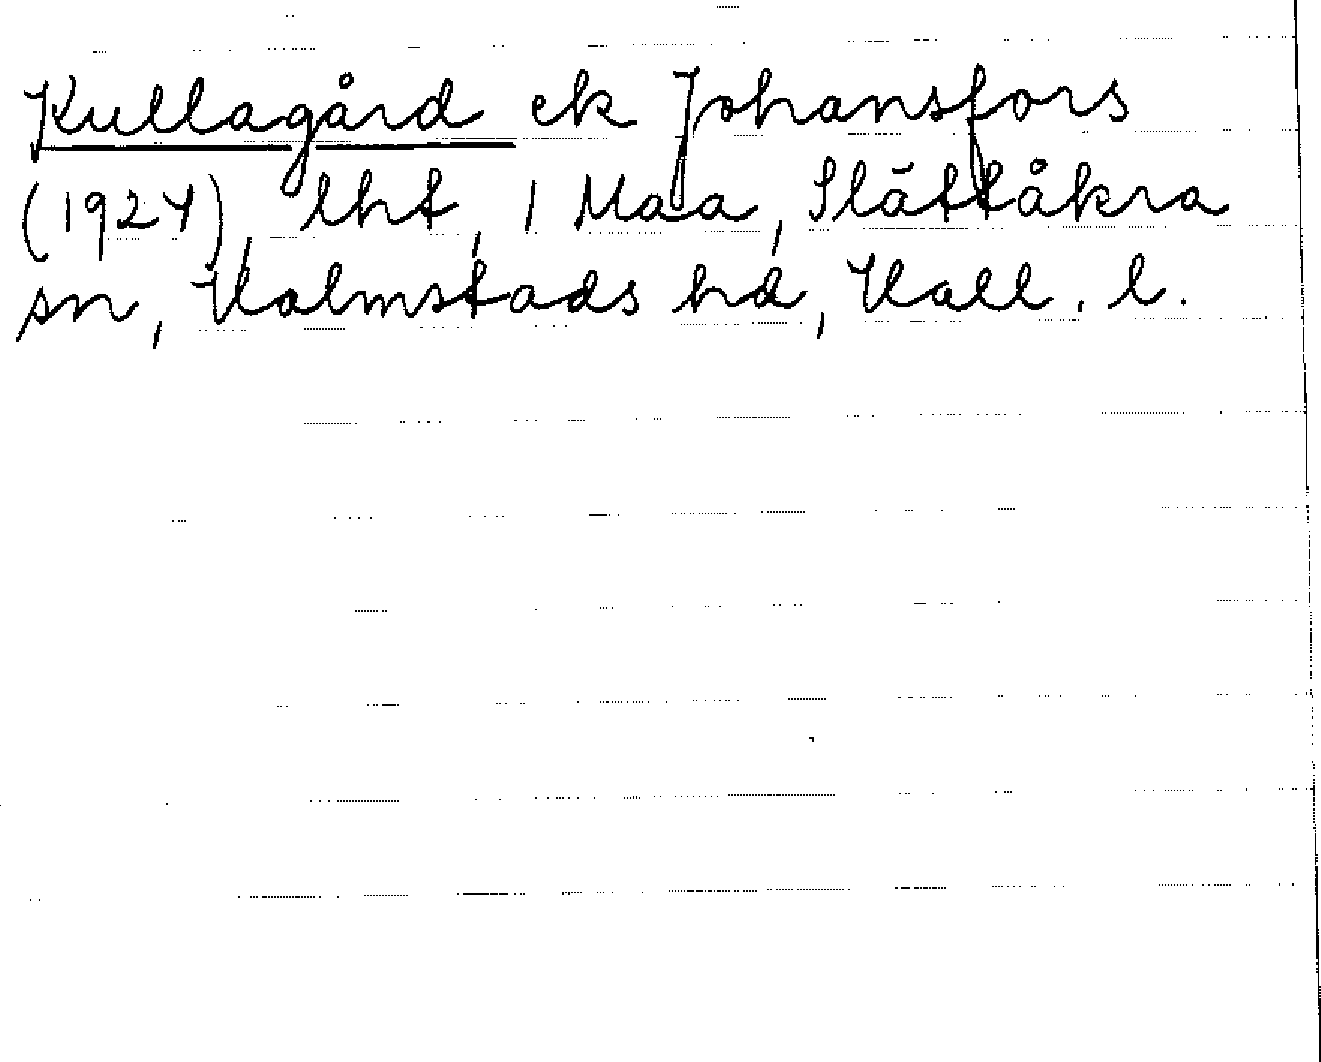 Kullagård ek Johansfors
(1924), lht, 1 Maa, Slättåkra
sn, Halmstads hd, Hall. l.